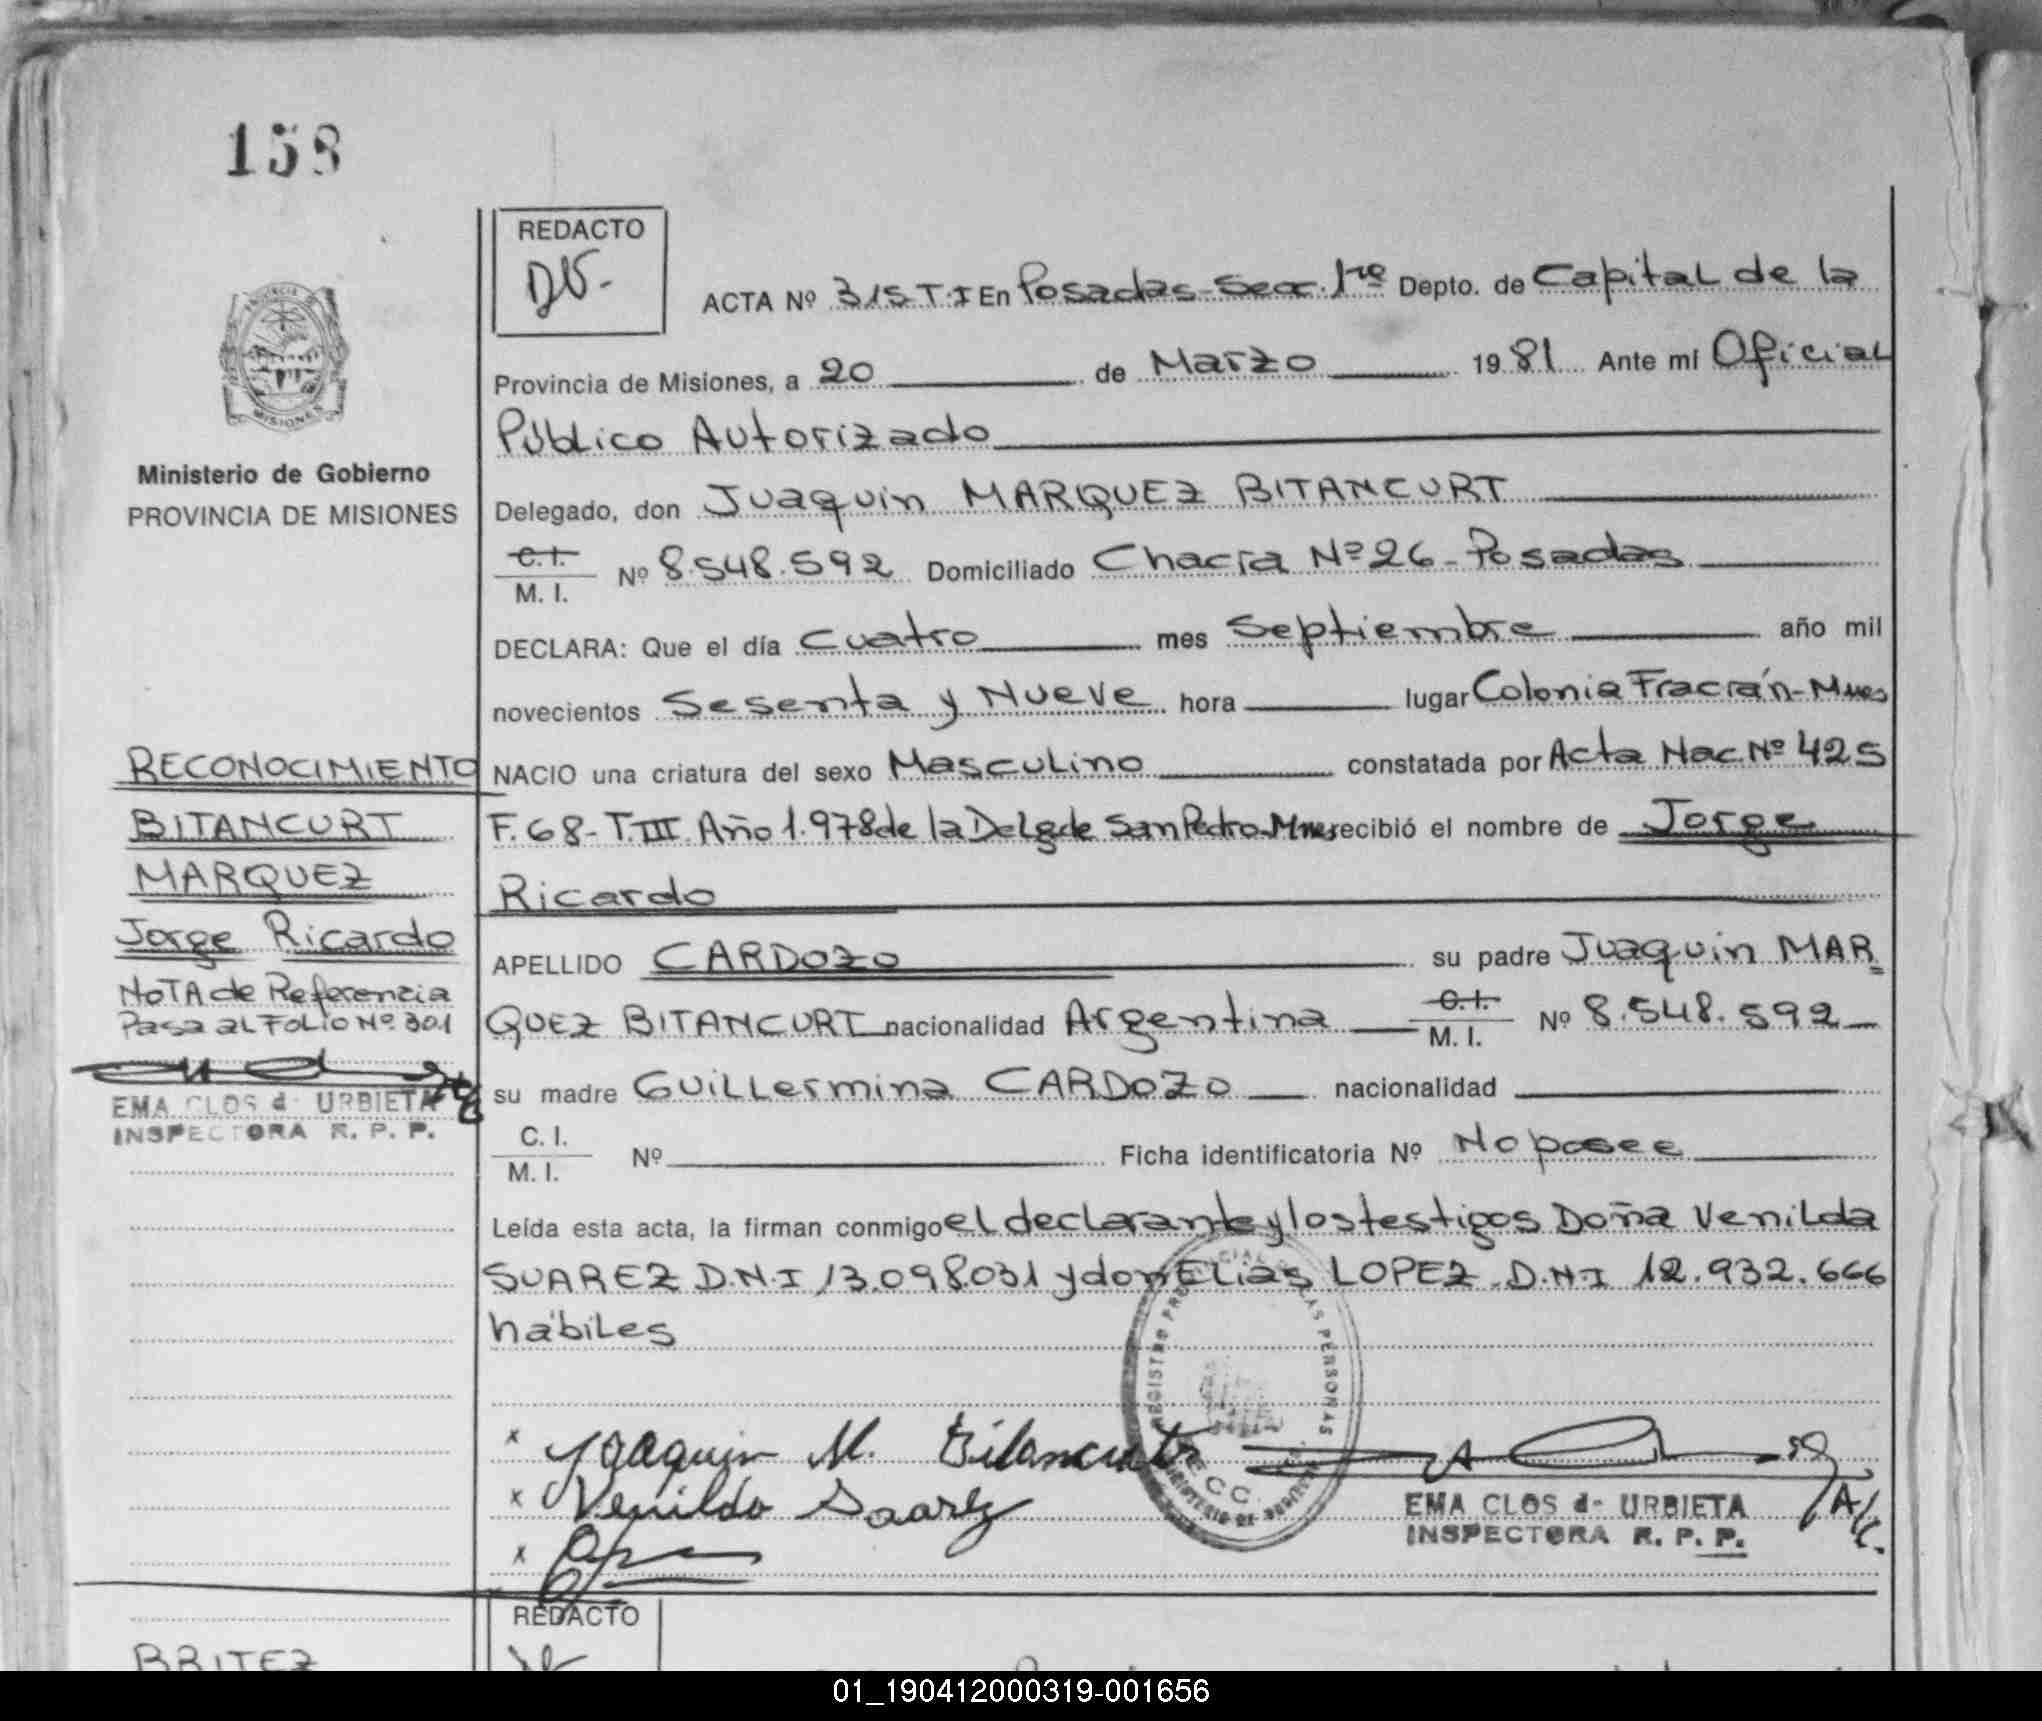 158
REDACTO
DV.
ACTA Nº 315 T.I En Posadas-Secc. 1ra Depto. de Capital de la
Provincia de Misiones, a 20 de Marzo 1981 Ante mí Oficial
Público Autorizado
Delegado, don Juaquin MARQUEZ BITANCURT
C.I.
M. I. Nº 8.548.592 Domiciliado Chacra Nº 26 - Posadas
DECLARA: Que el día Cuatro mes Septiembre año mil
novecientos Sesenta y Nueve hora lugar Colonia Fracrán-Mnes
NACIO una criatura del sexo Masculino constatada por Acta Nac Nº 425
F. 68 - T. III Año 1.978 de la Deleg de San Pedro-Mnes recibió el nombre de Jorge
Ricardo
APELLIDO CARDOZO su padre Juaquin MAR
QUEZ BITANCURT nacionalidad Argentina C.I.
M. I. Nº 8.548.592
su madre Guillermina CARDOZO nacionalidad
C. I.
M. I. Nº Ficha identificatoria Nº No posee
Leída esta acta, la firman conmigo el declarante y los testigos Doña Venilda
SUAREZ D.N.I 13.098.031 y don Elias LOPEZ D.N.I 12.932.666
hábiles
x Joaquin M. Bitancurt
x Venildo Soarez
x
REGISTRO PROVINCIAL DE LAS PERSONAS
EMA CLOS de URBIETA
INSPECTORA R. P. P.
A/C.
PROVINCIA DE
MISIONES
Ministerio de Gobierno
PROVINCIA DE MISIONES
RECONOCIMIENTO
BITANCURT
MARQUEZ
Jorge Ricardo
NOTA de Referencia
Pasa al FOLIO Nº 301
EMA CLOS de URBIETA
INSPECTORA R. P. P.
REDACTO
BRITEZ
01_190412000319-001656